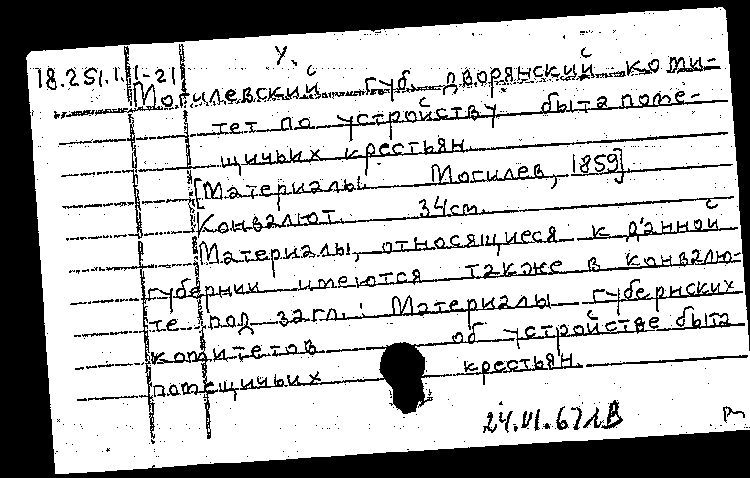 У.
18.251.1.1-21
Могилевский губ. дворянский коми-
тет по устройству быта поме-
щичьих крестьян.
[Материалы. Могилев, 1859].
Конвалют. 34см.
Материалы, относящиеся к данной
губернии имеются также в конвалю-
те под загл.: Материалы губернских
комитетов об устройстве быта
помещичьих крестьян.
24.VI.67